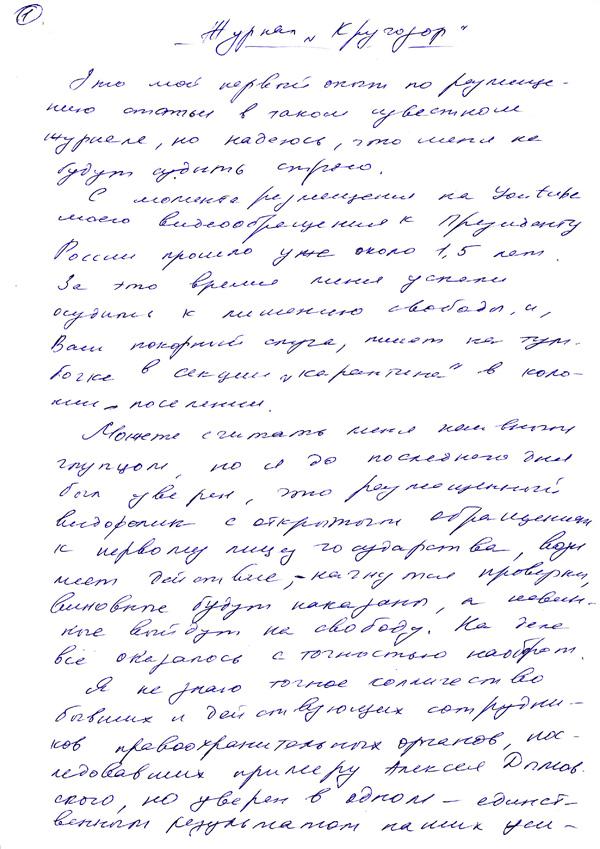 1
Журнал „Кругозор"
Это мой первый опыт по размеще-
нию статьи в таком известном
журнале, но надеюсь, что меня не
будут судить строго.
С момента размещения на Youtube
моего видеообращения к Президенту
России прошло уже около 1,5 лет.
За это время меня успели
осудить к лишению свободы, и,
Ваш покорный слуга, пишет на тум-
бочке в секции „карантина" в коло-
нии-поселении.
Можете считать меня наивным
глупцом, но я до последнего дня
был уверен, что размещенный
видоролик с открытым обращением
к первому лицу государства, возы
меет действие, - начнутся проверки,
виновные будут наказаны, а невин-
ные выйдут на свободу. На деле
всё оказалось с точностью наоборот.
Я не знаю точное колличество
бывших и действующих сотрудни-
ков правоохранительных органов, пос-
ледовавших примеру Алексея Дымов-
ского, но уверен в одном - единст-
венным результатом наших уси-